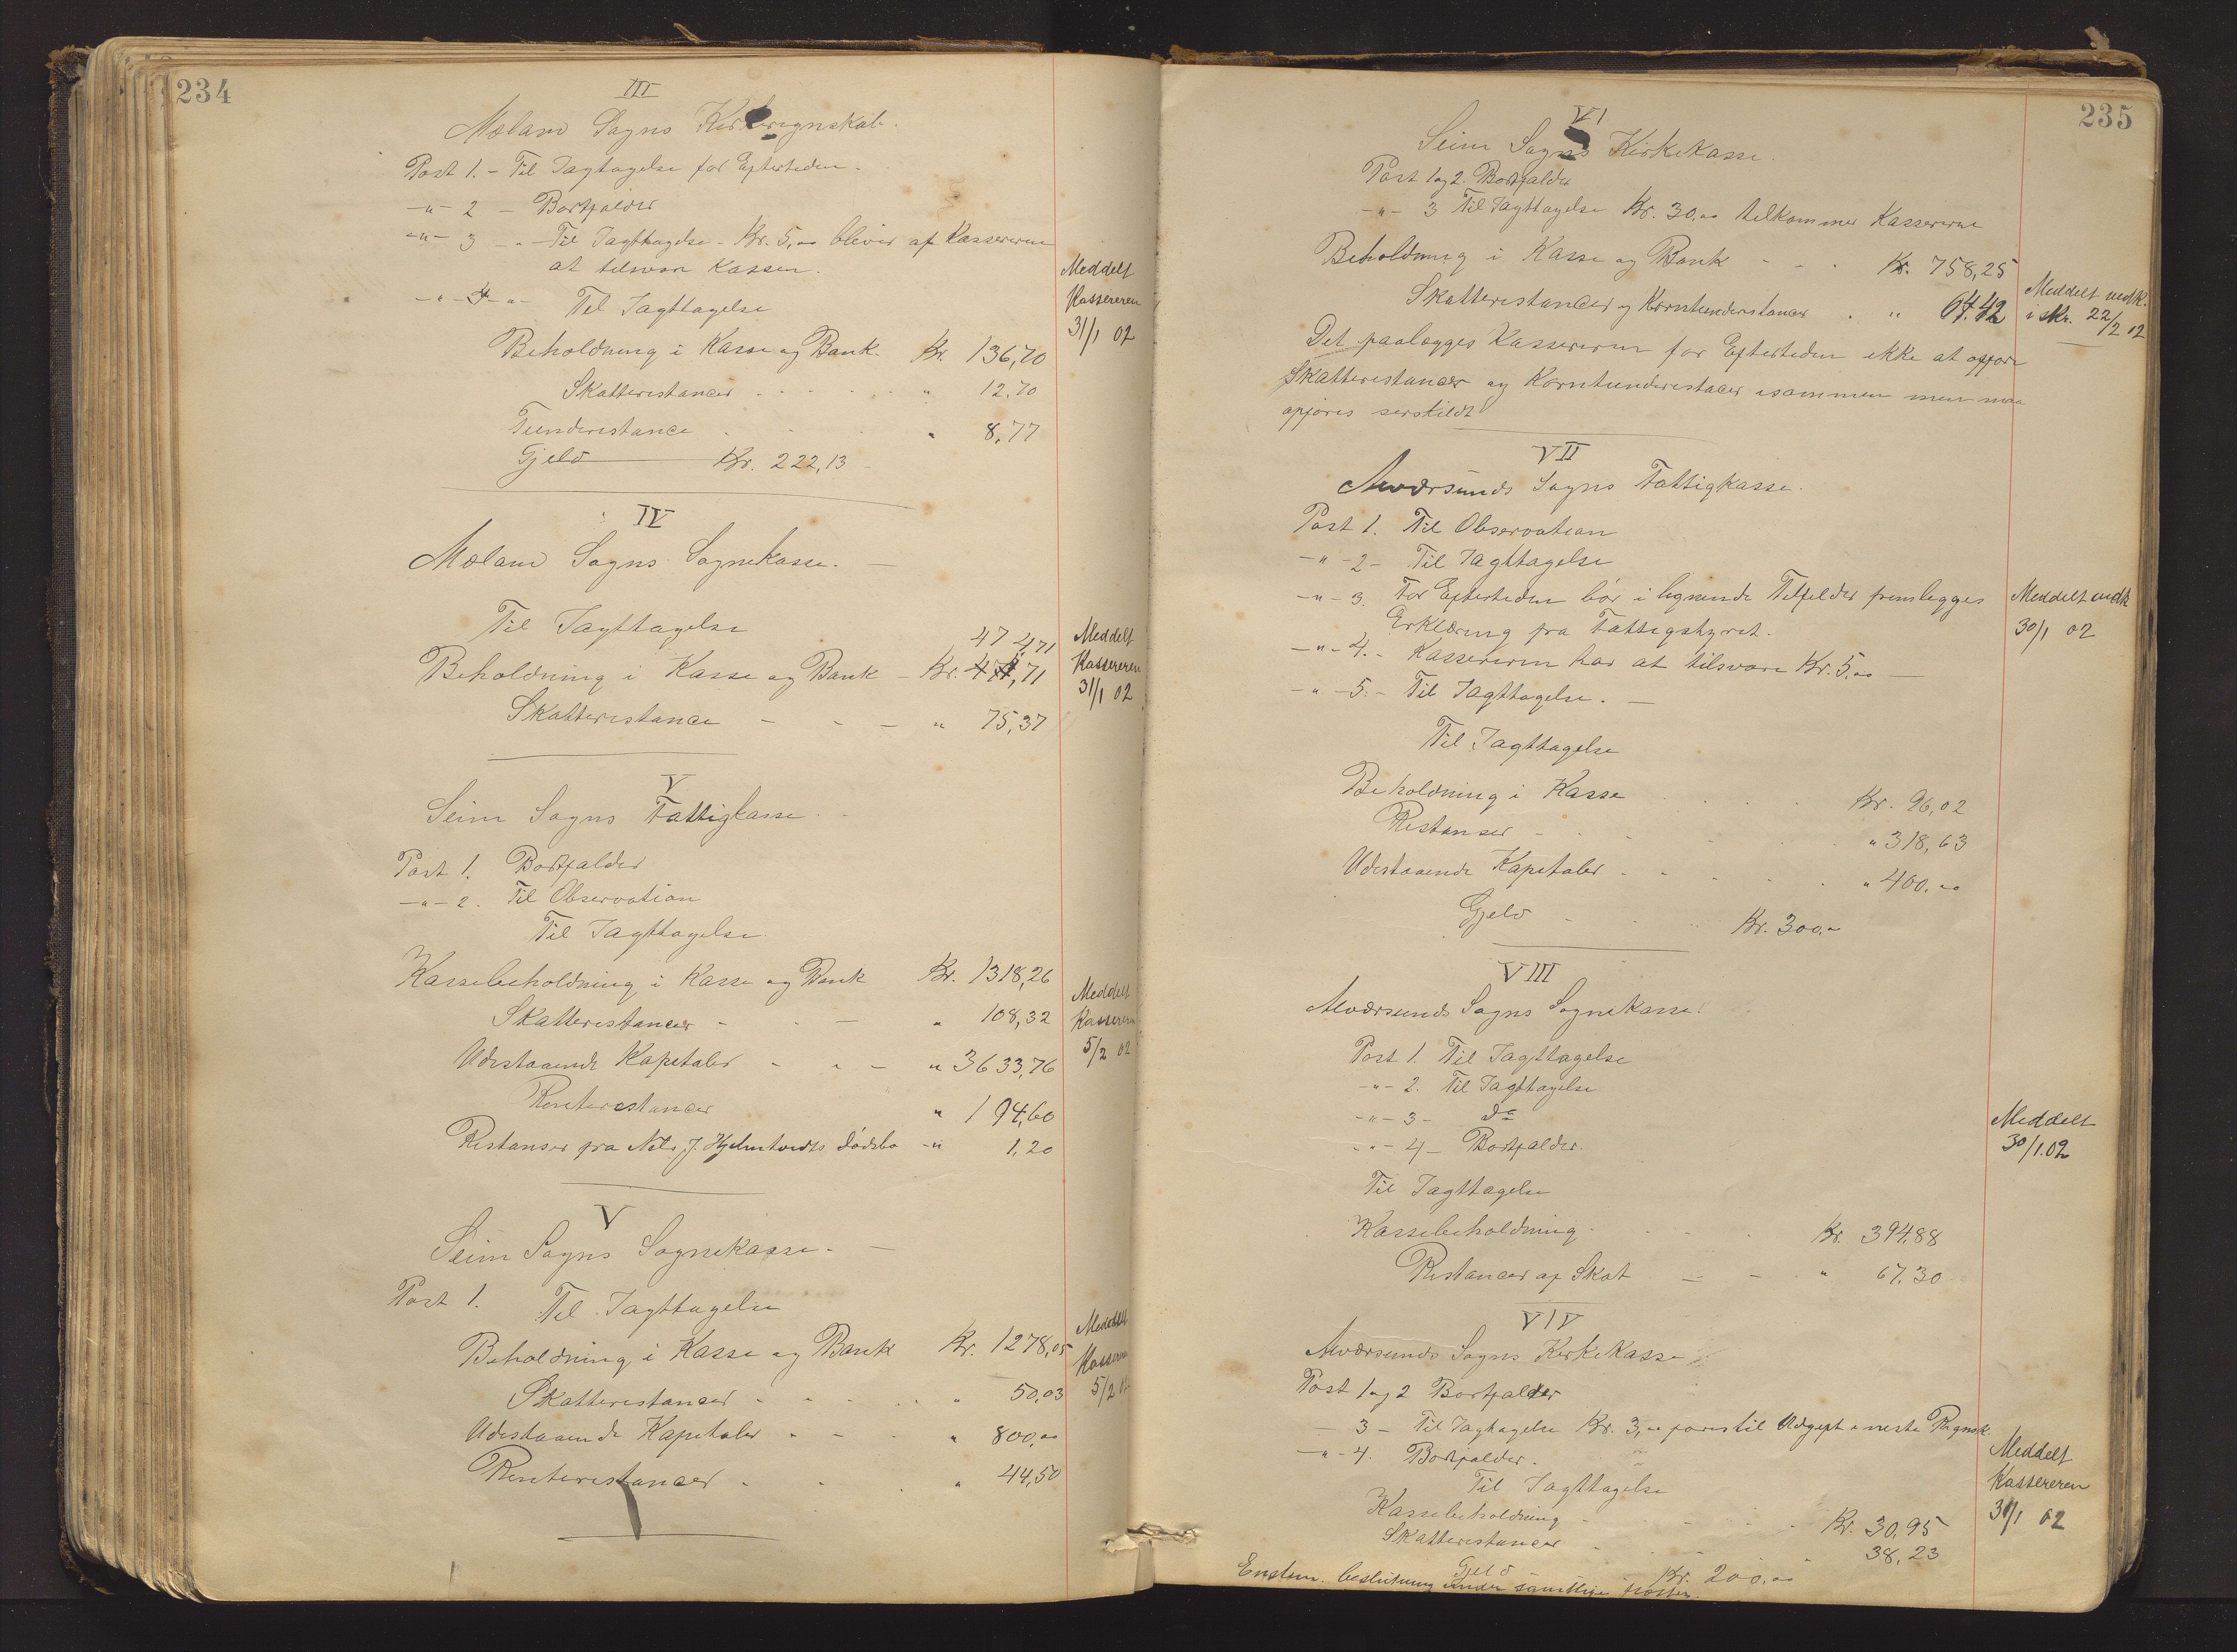 234
III
Mælans Sogns Kirkeregnskab.
Post 1. - Til Iagttagelse for Eftertiden.
-"- 2 - Bortfalder
-"- 3 - Til Iagttagelse - Kr. 5,00 bliver af Kassereren
at tilsvare Kassen.
-"- 4 -"- Til Iagttagelse
Beholdning i Kasse og Bank. Kr. 136,70
Skatterestancer " 12,70
Tienderestance " 8,77
Gjeld Kr. 222,13
Meddelt
Kassereren
31/1 02
IV
Mælans Sogns Sognekasse.
Til Iagttagelse
47471
Beholdning i Kasse og Bank - Kr. 474,71
Skatterestance " 75,37
Meddelt
Kassereren
31/1 02
V
Seim Sogns Fattigkasse.
Post 1. Bortfalder
-"- 2. Til Observation
Til Iagttagelse
Kassebeholdning i Kasse og Bank Kr. 1318,26
Skatterestancer " 108,32
Udestaaende Kapitaler " 3633,76
Renterestancer " 194,60
Restanser fra Nils J. Hjelmtvedts dødsbo -" 1,20
Meddelt
Kassereren
5/2 02
V
Seim Sogns Sognekasse.
Post 1. Til Iagttagelse
Beholdning i Kasse og Bank Kr. 1278,05
Skatterestancer " 50,03
Udestaaende Kapitaler " 800,00
Renterestancer " 44,50
Meddelt
Kassereren
5/2
235
VI
Seim Sogns Kirkekasse.
Post 1 og 2. Bortfalder
-"- 3 Til Iagttagelse Kr. 30,00 tilkommer Kassererne
Beholdning i Kasse og Bank Kr. 758,25
Skatterestancer og Korntienderestancer " 64.42
Meddelt vedk.
i skr. 22/2 02
Det paalægges Kassereren for Eftertiden ikke at opføre
Skatterestancer og Korntienderestacer isammen men maa
opføres serskildt
VII
Alværsunds Sogns Fattigkasse.
Post 1. Til Observation
-"- 2- Til Iagttagelse
-"- 3. For Eftertiden bør i lignende Tilfelder fremlegges
Erklæring fra Fattigstyret.
-"- 4.- Kassereren har at tilsvare Kr. 5,00
-"- 5.- Til Iagttagelse.
Meddelt vedk
30/1 02
Til Iagttagelse
Beholdning i Kasse Kr. 96,02
Restanser " 318,63
Udestaaende Kapitaler " 400,00
Gjeld Kr. 300,00
VIII
Alværsunds Sogns Sognekasse.
Post 1. Til Iagttagelse
-"- 2. Til Iagttagelse
-"- 3- do
-"- 4- Bortfalder.
Meddelt
30/1.02
Til Iagttagelse
Kassebeholdning Kr. 394,88
Restancer af Skat " 67,30
VIV
Alværsunds Sogns Kirkekasse
Post 1 og 2 Bortfalder
- 3 - Til Iagttagelse Kr. 3,00 føres til Udgift i neste Regnsk.
-"- 4. Bortfalder.
Til Iagttagelse
Kassebeholdning Kr. 30,95
Skatterestancer 38,23
Meddelt
Kassereren
31/1 02
Gjeld Kr. 200,00
Enstem. beslutning under samtlige poster.